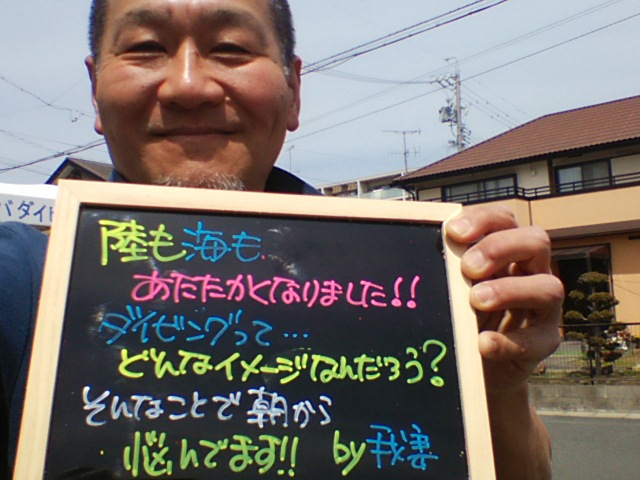 バダイビ
陸も海も
あたたかくなりました!!
ダイビングって…
どんなイメージなんだろう?
そんなことで朝から
悩んでます!! by我妻